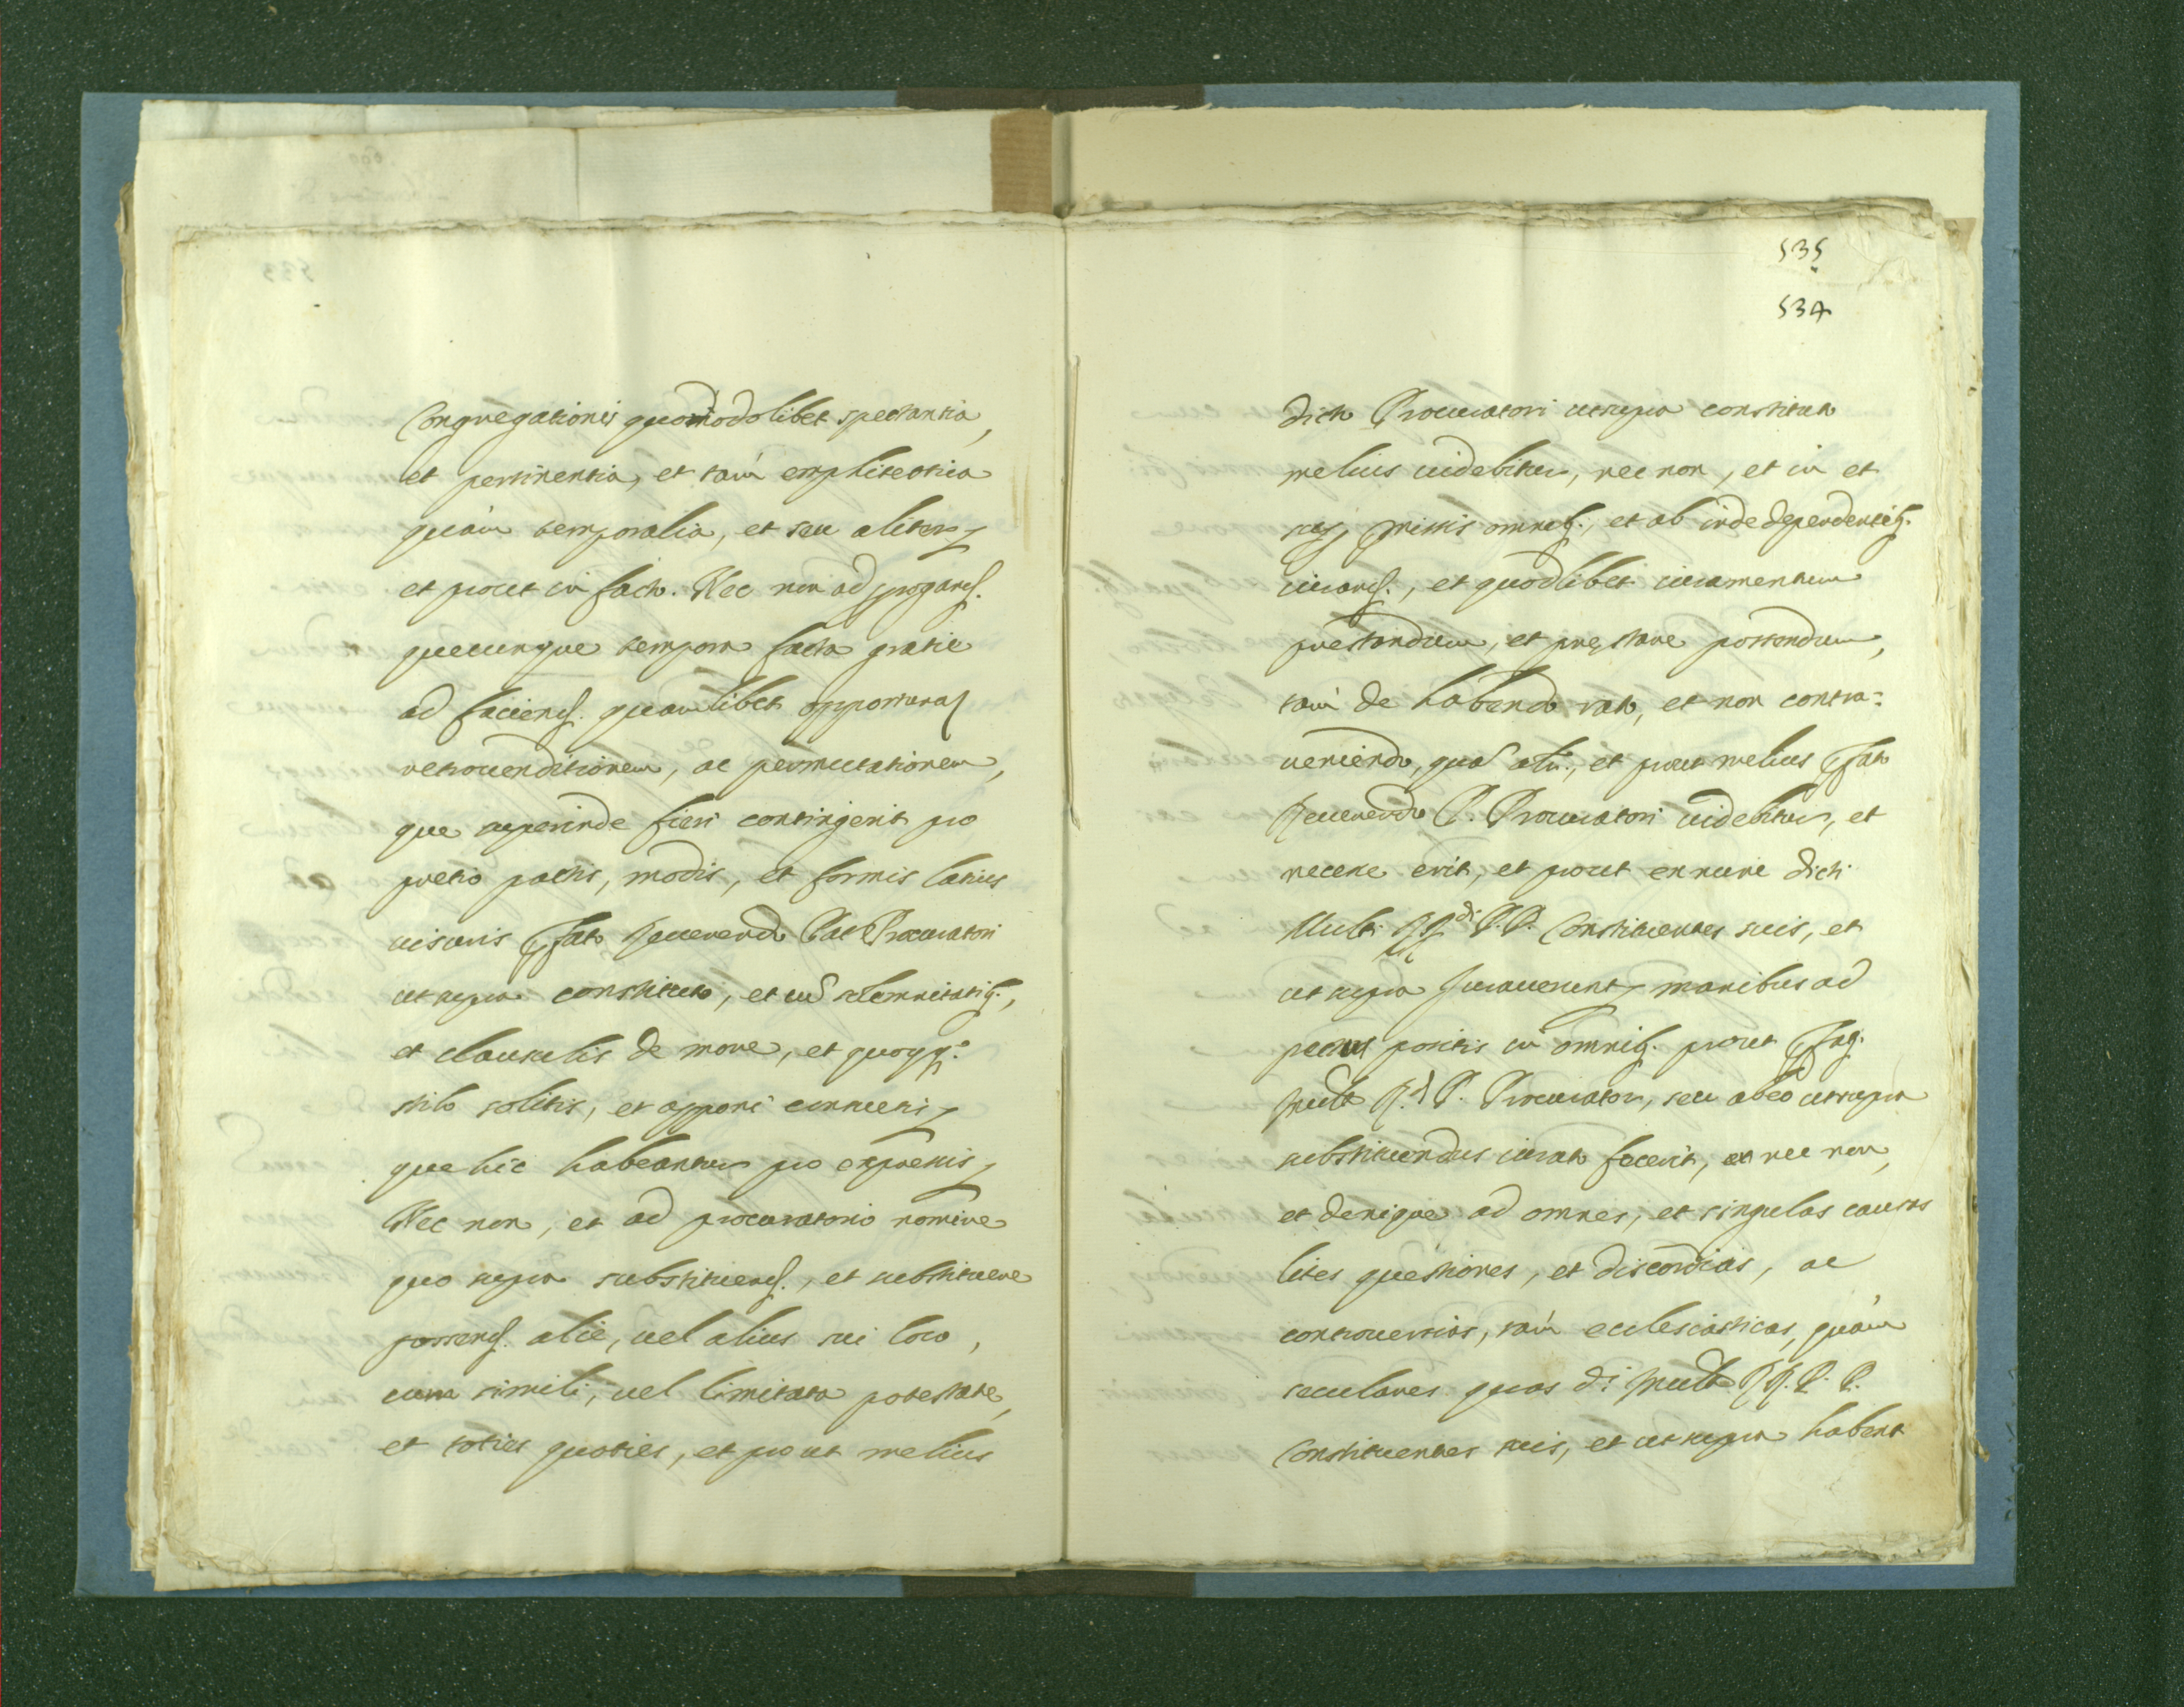 Congregationis quomodolibet spectantia,
et pertinentia, et tam emphiteotica
quàm temporalia, et seu aliter,
et prout in facto. Nec non ad progand.
quecunque tempora facta gratie
ad faciend. quamlibet opportunam
retrovenditionem, ac permutationem,
que superinde fieri contingerit pro
pretio pactis, modis, et formis latius
visuris Pfato Reverendo Pat Procuratori
ut supra constituto, et cum solemnitatib.,
et clausulis de more, et quocumq.
stilo solitis, et apponi consuetis,
que hic habeantur pro expressis,
Nec non, et ad procuratorio nomine
quo supra substituend., et substituere
possend. aliè, vel alius sui loco,
cum simili, vel limitata potestate,
et toties quoties, et prout melius
535
534
dicto Procuratori ut supra constituto
melius videbitur, nec non, et in et
sup. premissis omnib., et ab inde dependentib.
iurand., et quodlibet iuramentum
prestandum, et prestare possendum,
tam de habendo rato, et non contra-
veniendo, quam alit., et prout melius Pfato
Reverendo P. Procuratori videbitur, et
necesse erit, et prout ex nunc dicti
Multi RR.di P.P. Constituentes suis, et
ut supra Juraverunt, manibus ad
pectus positis in omnib. prout Pfatus
Mult R.d P. Procurator, seu ab eo ut supra
substituendus iurato fecerit, et nec non,
et denique ad omnes, et singulas causas
lites questiones, et discordias, ac
controversias, tam ecclesiasticas, quàm
seculares quas di Mult RR. P. P.
Constituentes suis, et ut supra habent